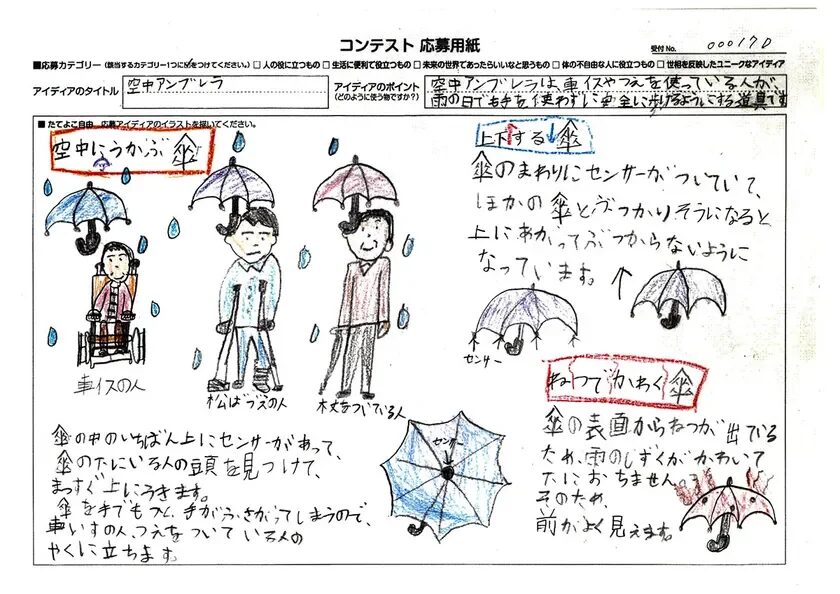 コンテスト 応募用紙
受付No. 00017D
■応募カテゴリー（該当するカテゴリー1つに☑をつけてください。）□ 人の役に立つもの □ 生活に便利で役立つもの □ 未来の世界であったらいいなと思うもの □ 体の不自由な人に役立つもの □ 世相を反映したユニークなアイディア
アイディアのタイトル
空中アンブレラ
アイディアのポイント
（どのように使う物ですか？）
空中アンブレラは、車イスやつえを使っている人が、
雨の日でも手を使わずに安全に歩けるようにする道具です
■ たてよこ自由 応募アイディアのイラストを描いてください。
空中にうかぶ 傘
車イスの人
松ばづえの人
杖をついている人
傘の中のいちばん上にセンサーがあって、
傘の下にいる人の頭を見つけて、
まっすぐ上にうきます。
傘を手でもつと、手がふさがってしまうので、
車いすの人、つえをついている人の
やくに立ちます。
センサー
上下する 傘
傘のまわりにセンサーがついていて、
ほかの傘とぶつかりそうになると
上にあがってぶつからないように
なっています。
センサー
ねつでかわく 傘
傘の表面からねつが出ている
ため、雨のしずくがかわいて
下におちません。
そのため、
前がよく見えます。